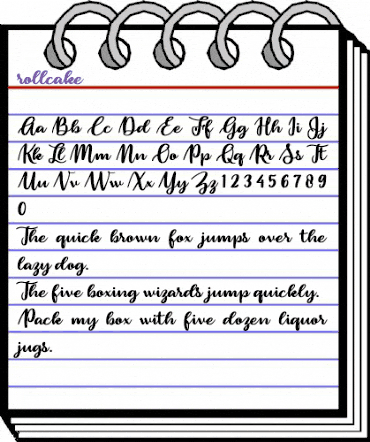 rollcake
Aa Bb Cc Dd Ee Ff Gg Hh Ii Jj
Kk Ll Mm Nn Oo Pp Qq Rr Ss Tt
Uu Vv Ww Xx Yy Zz 1 2 3 4 5 6 7 8 9
0
The quick brown fox jumps over the
lazy dog.
The five boxing wizards jump quickly.
Pack my box with five dozen liquor
jugs.